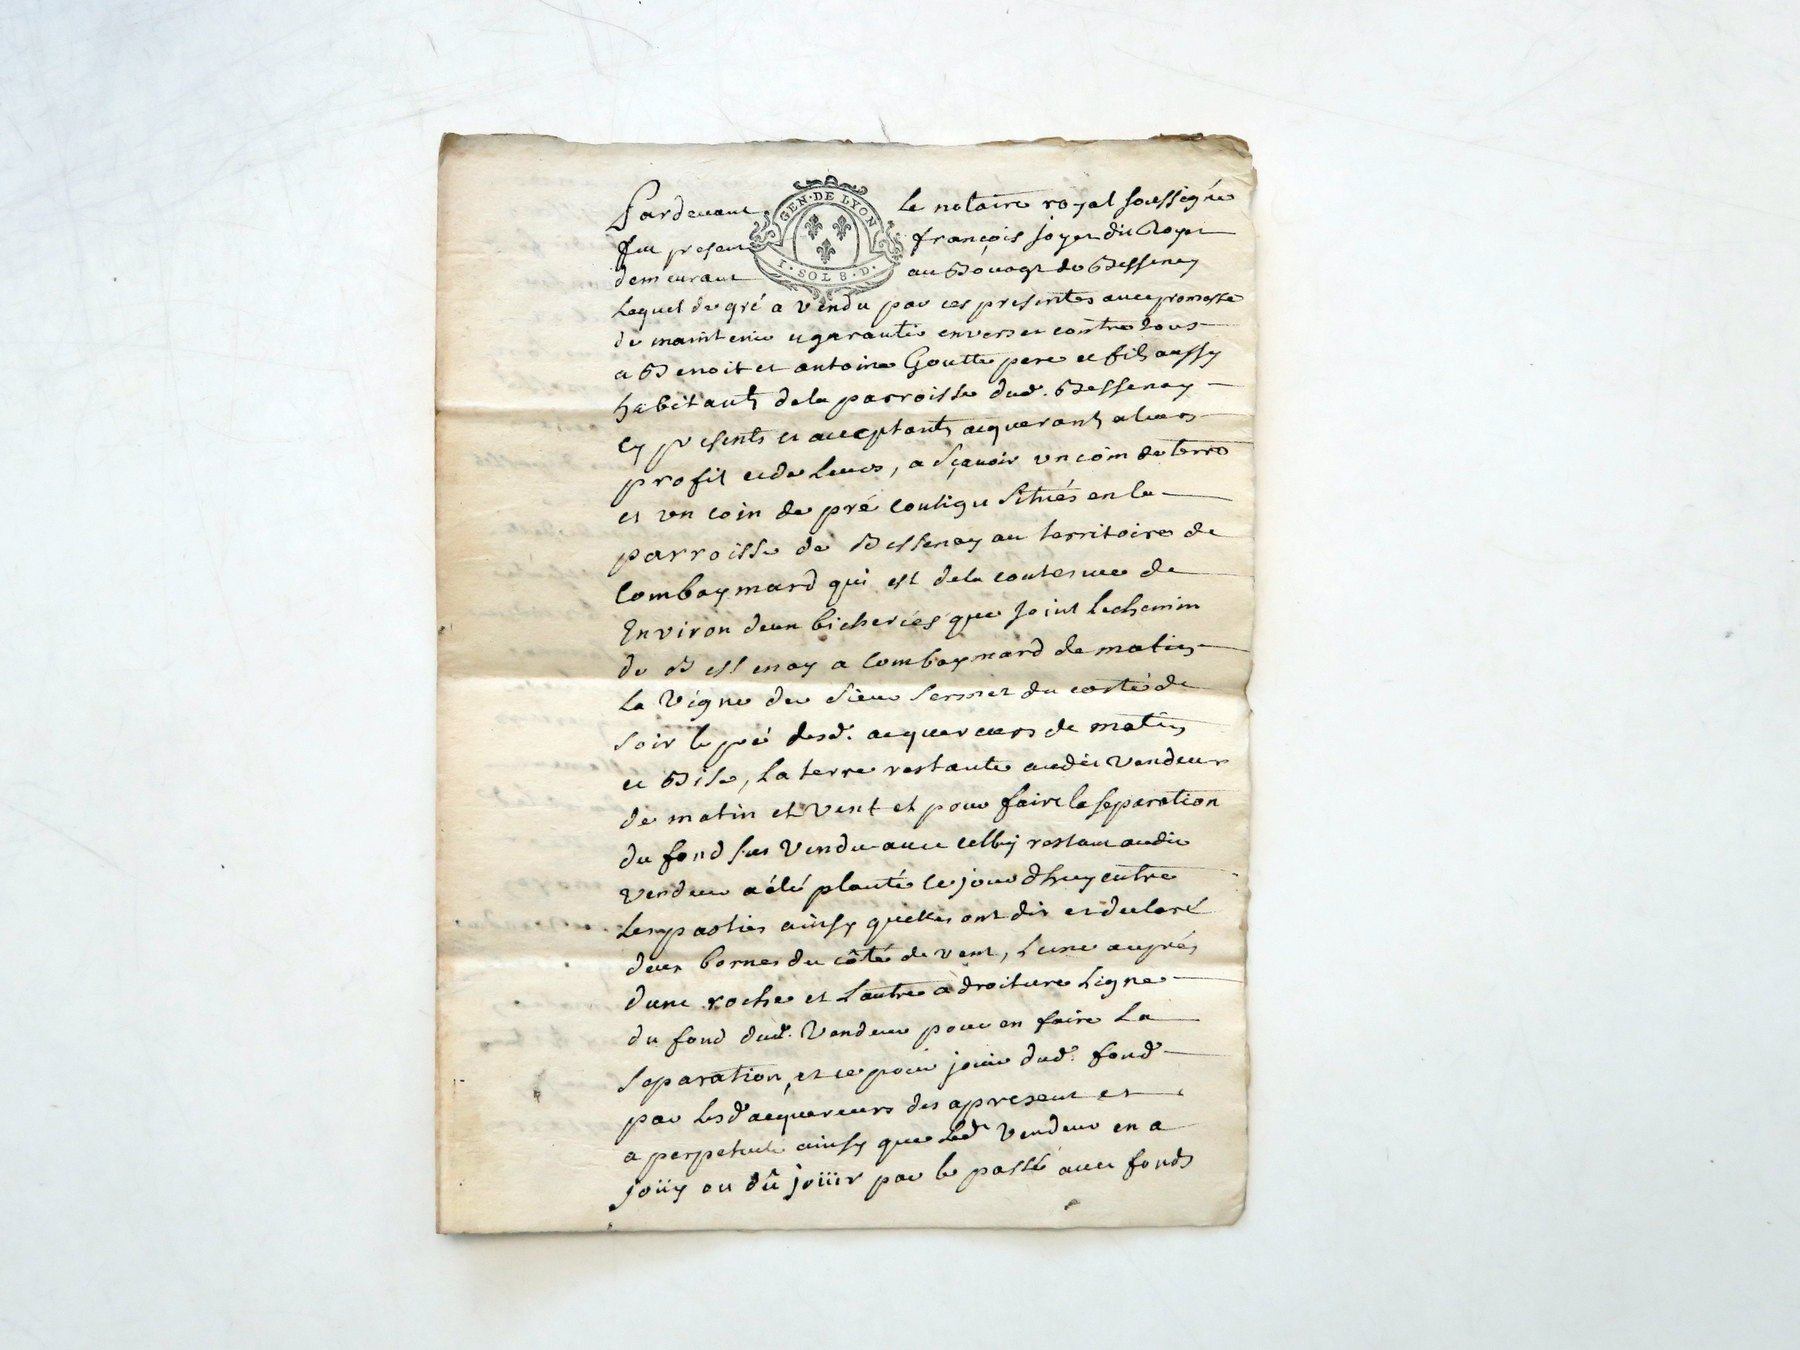 GEN. DE LYON
1. SOL 8. D.
Pardevant le notaire royal soussigné
fut present françois joyet dit Royet
demeurant au Bouage de Bessenay
Lequel de gré a vendu par ces presentes avec promesse
de maintenir et garantir envers et contre tous
a Benoit et antoine Goutte pere et fils aussy
habitants de la parroisse dud. Bessenay
cy presents et acceptants acquerants a leurs
profit et de Leurs, a Sçavoir un coin de terre
et un coin de pré contigu Situés en la
parroisse de Bessenay au territoire de
Combaymard qui est de la contenue de
Environ deux bicherées que joint Le chemin
de Bessenay a Combaymard de matin
La Vigne du Sieur du costé de
soir le pré desd. acquereurs de matin
et Bise, La terre restante audit Vendeur
de matin et vent et pour faire la separation
du fond sus Vendu avec celluy restant audit
Vendeur a été planté ce jourdhuy entre
Les parties ainsy quelles ont dit et declaré
deux bornes du côté de vent, L'une auprés
d'une roche et L'autre a droiture Ligne
du fond dud. Vendeur pour en faire La
separation, et ce pour jouir dud. fond
par Lesd. acquereurs des apresent et
a perpetuité ainsy que Led. Vendeur en a
joüy ou dû joüir par le passé avec fonds